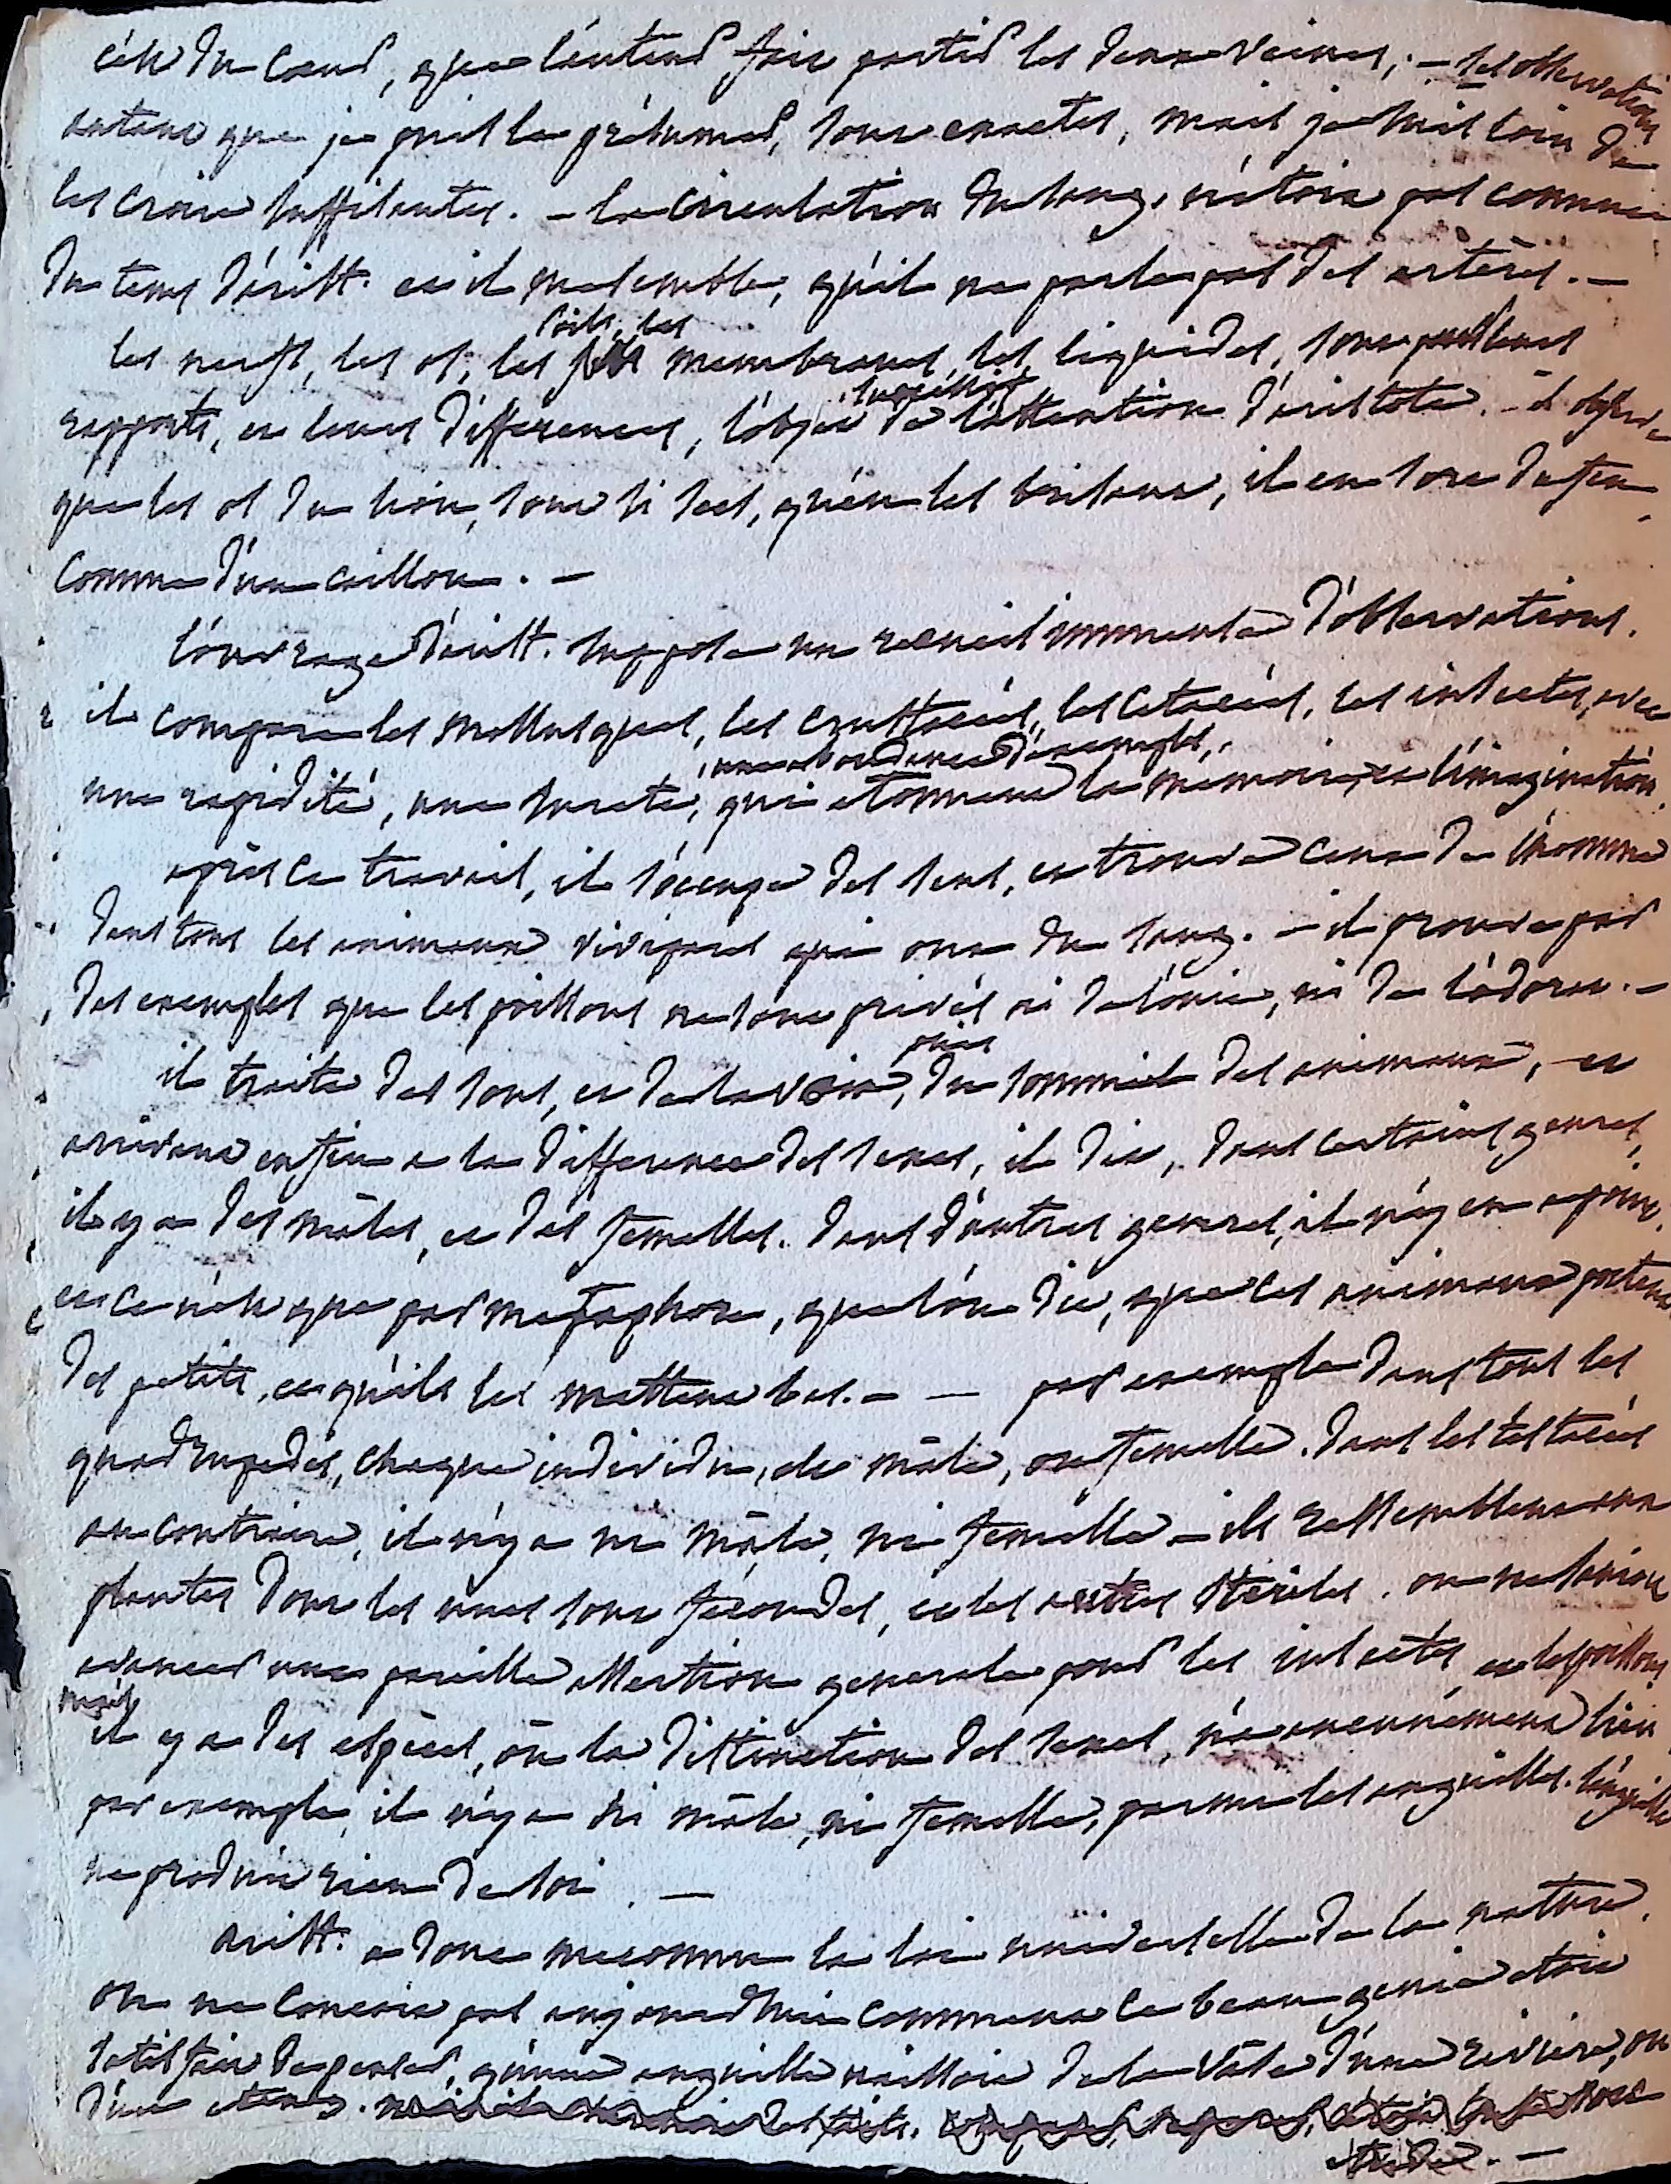 c'est du coeur, que l'auteur fait partir les deux veines; - ses observations
autant que je puis le présumer, sont exactes, mais je suis loin de
les croire suffisantes. - la circulation du sang, n'étoit pas connue
du tems d'arist. et il me semble, qu'il ne parle pas des artères. -
les nerfs, les os, les poils, les membranes, les liquides, sont par leurs
rapports, et leurs différences, l'objet successif de l'attention d'aristote. - il observe
que les os du lion, sont si secs, qu'en les brisant, il en sort du feu
comme d'un caillou. -
l'ouvrage d'arist. suppose un recueil immense d'observations.
il compare les mollusques, les crustacés, les cetacés, les insectes, avec
une rapidité, une sureté, une abondance d'exemples, qui etonnent la memoire, et l'imagination.
après ce travail, il s'occupe des sens, et trouve ceux de l'homme
dans tous les animaux vivipares qui ont du sang. - il prouve par
des exemples que les poissons ne sont privés ni de l'ouie, ni de l'odorat. -
il traite des sons, et de la voix, puis du sommeil des animaux, et
arrivant enfin a la difference des sexes, il dit, dans certains genres,
il y a des mâles, et des femelles. dans d'autres genres, il n'y en a point.
et ce n'est que par metaphore, que l'on dit, que ces animaux portent
des petits, et qu'ils les mettent bas. - - par exemple dans tous les
quadrupedes, chaque individu, est mâle, ou femelle. dans les testacés
au contraire, il n'y a ni mâle, ni femelle - ils ressemblent aux
plantes dont les unes sont fécondes, et les autres stériles. on ne sauroit
avancer une pareille assertion generale pour les insectes, et les poissons
mais il y a des espèces, où la distinction des sexes, n'a aucunement lieu.
par exemple, il n'y a ni mâle, ni femelle, parmi les anguilles. l'anguille
ne produit rien de soi. -
arist. a donc meconnu la loi universelle de la nature.
on ne concoit pas aujourd'hui comment ce beau genie etoit
satisfait de penser, qu'une anguille naissoit de la vase d'une riviere, ou
d'un etang.